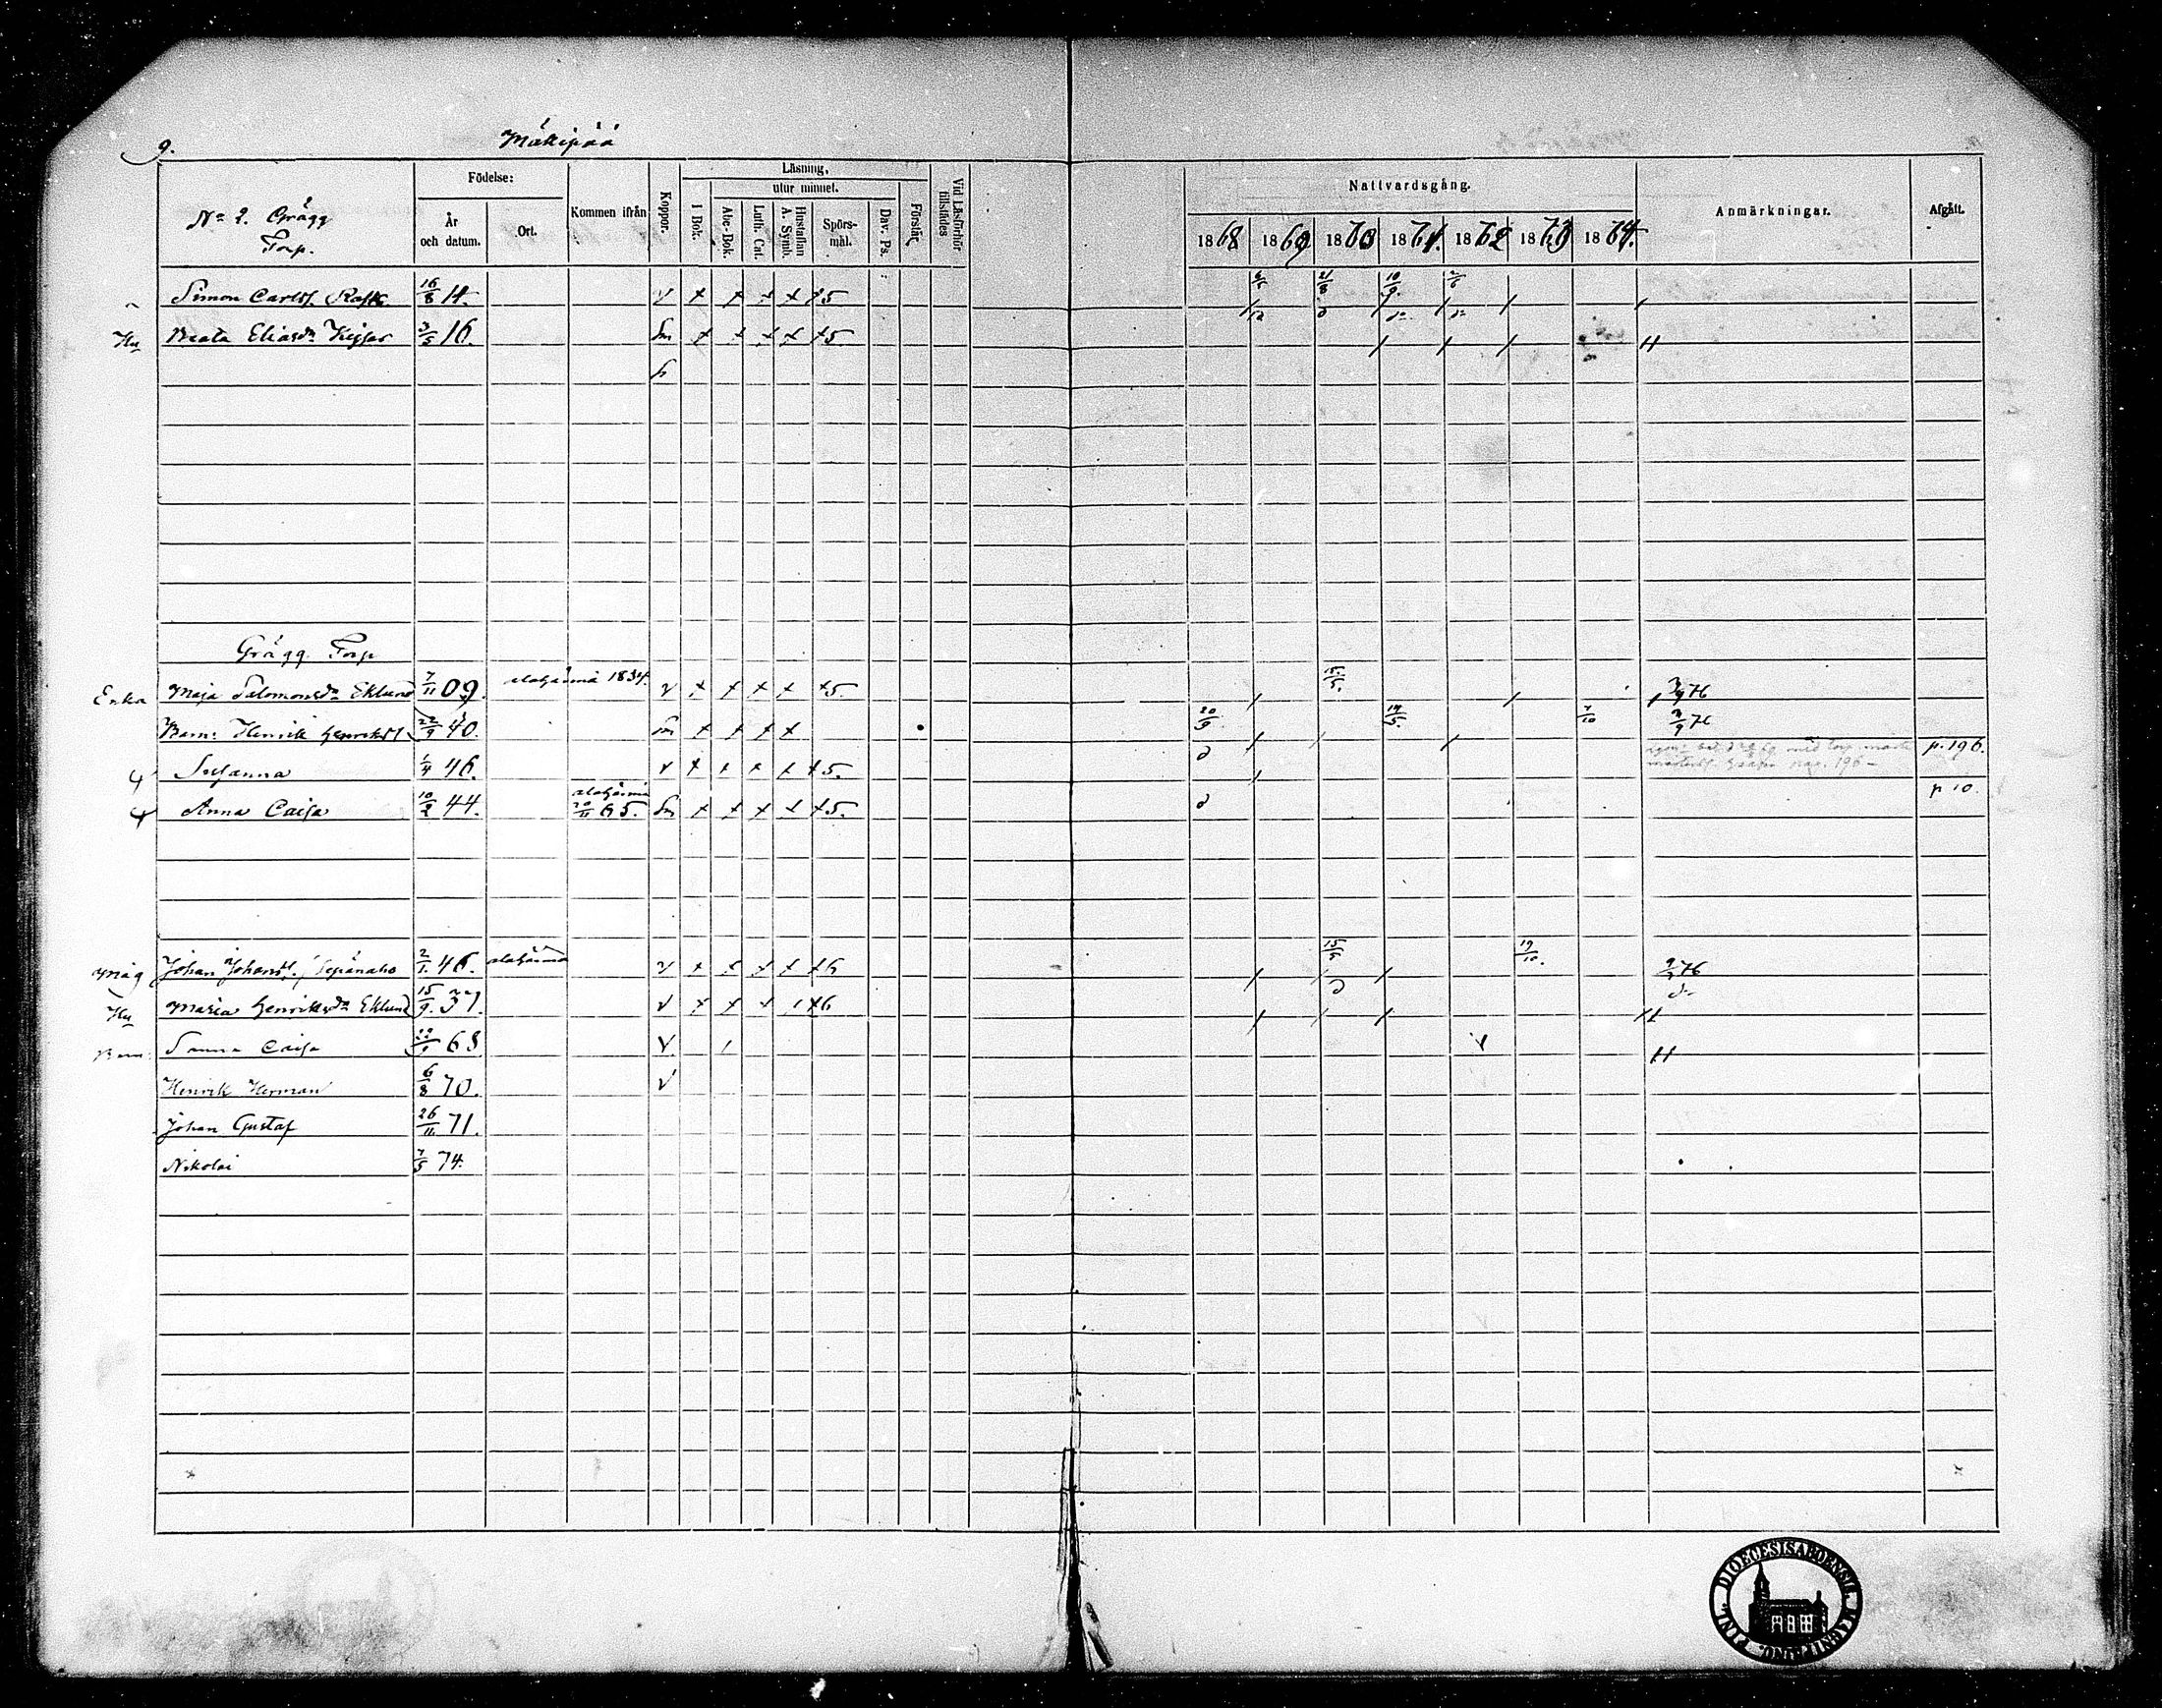 9.
Mäkipää
No 2. Grägg
Torp.
Födelse:
År
och datum.
Ort.
Kommen ifrån
Koppor.
Läsning,
I Bok.
utur minnet.
Abc-Bok.
Luth. Cat.
Hustaflan
A. Symb.
Spörs-
mål.
Dav. Ps.
Förstår
Vid Läsförhör
tillstädes
Nattvardsgång.
1868 1869 1870 1871. 1872 1873 1874.
Anmärkningar.
Afgått.
Simon Carlss. Rask 16/8 14. v + + + + +5
6/6 21/8 10/9. 2/6
Hu Beata Eliasdr Keisar 3/5 16. Sm + + + + +5.
Grägg Torp
Enka Maja Salomonsdr Eklund 7/11 09. Alahärmä 1834. v + + + + +5.
15/5. 3/9 76
Barn: Henrik Henrikss 22/9 40. Sm + + + +
20/9 14/5. 7/10 3/9 76
Susanna 1/4 46. v + + + + +5.
p. 196.
pag. 196
Anna Caisa 10/2 44. Alahärmä 20/11 65. Sm + + + + +5.
p 10.
Måg Johan Johanss. Seppänaho 2/1 46. Alahärmä v + + + + +6
15/5 19/10. 76
Hu Maria Henriksdr Eklund 15/9. 37. v + + + +6
Barn: Sanna Caisa 68 v
Henrik Herman 6/8 70. v
Johan Gustaf 26/11 71.
Nikolai 7/5 74.
DIOECESIS ABOENSIS